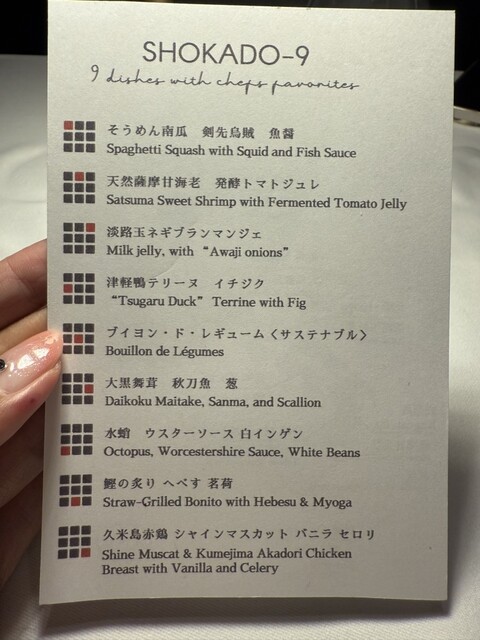 SHOKADO-9
9 dishes with chefs favorites
そうめん南瓜　剣先烏賊　魚醤
Spaghetti Squash with Squid and Fish Sauce
天然薩摩甘海老　発酵トマトジュレ
Satsuma Sweet Shrimp with Fermented Tomato Jelly
淡路玉ネギブランマンジェ
Milk jelly, with “Awaji onions”
津軽鴨テリーヌ　イチジク
“Tsugaru Duck” Terrine with Fig
ブイヨン・ド・レギューム〈サステナブル〉
Bouillon de Légumes
大黒舞茸　秋刀魚　葱
Daikoku Maitake, Sanma, and Scallion
水蛸　ウスターソース 白インゲン
Octopus, Worcestershire Sauce, White Beans
鰹の炙り へべす 茗荷
Straw-Grilled Bonito with Hebesu & Myoga
久米島赤鶏 シャインマスカット バニラ セロリ
Shine Muscat & Kumejima Akadori Chicken
Breast with Vanilla and Celery